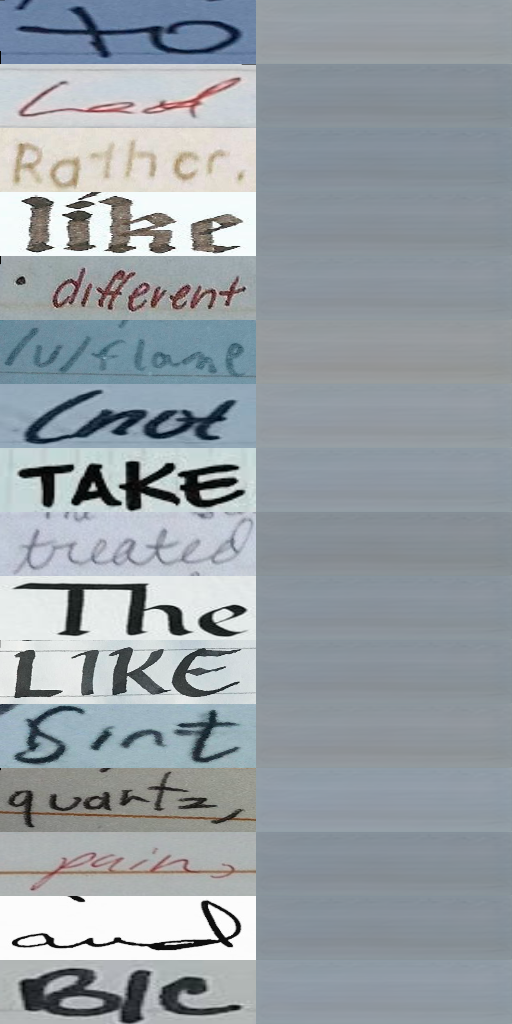 to
had
Rather.
like
• different
/v/flame
(not
TAKE
treated
The
LIKE
Sint
quartz,
pain,
and
B/C